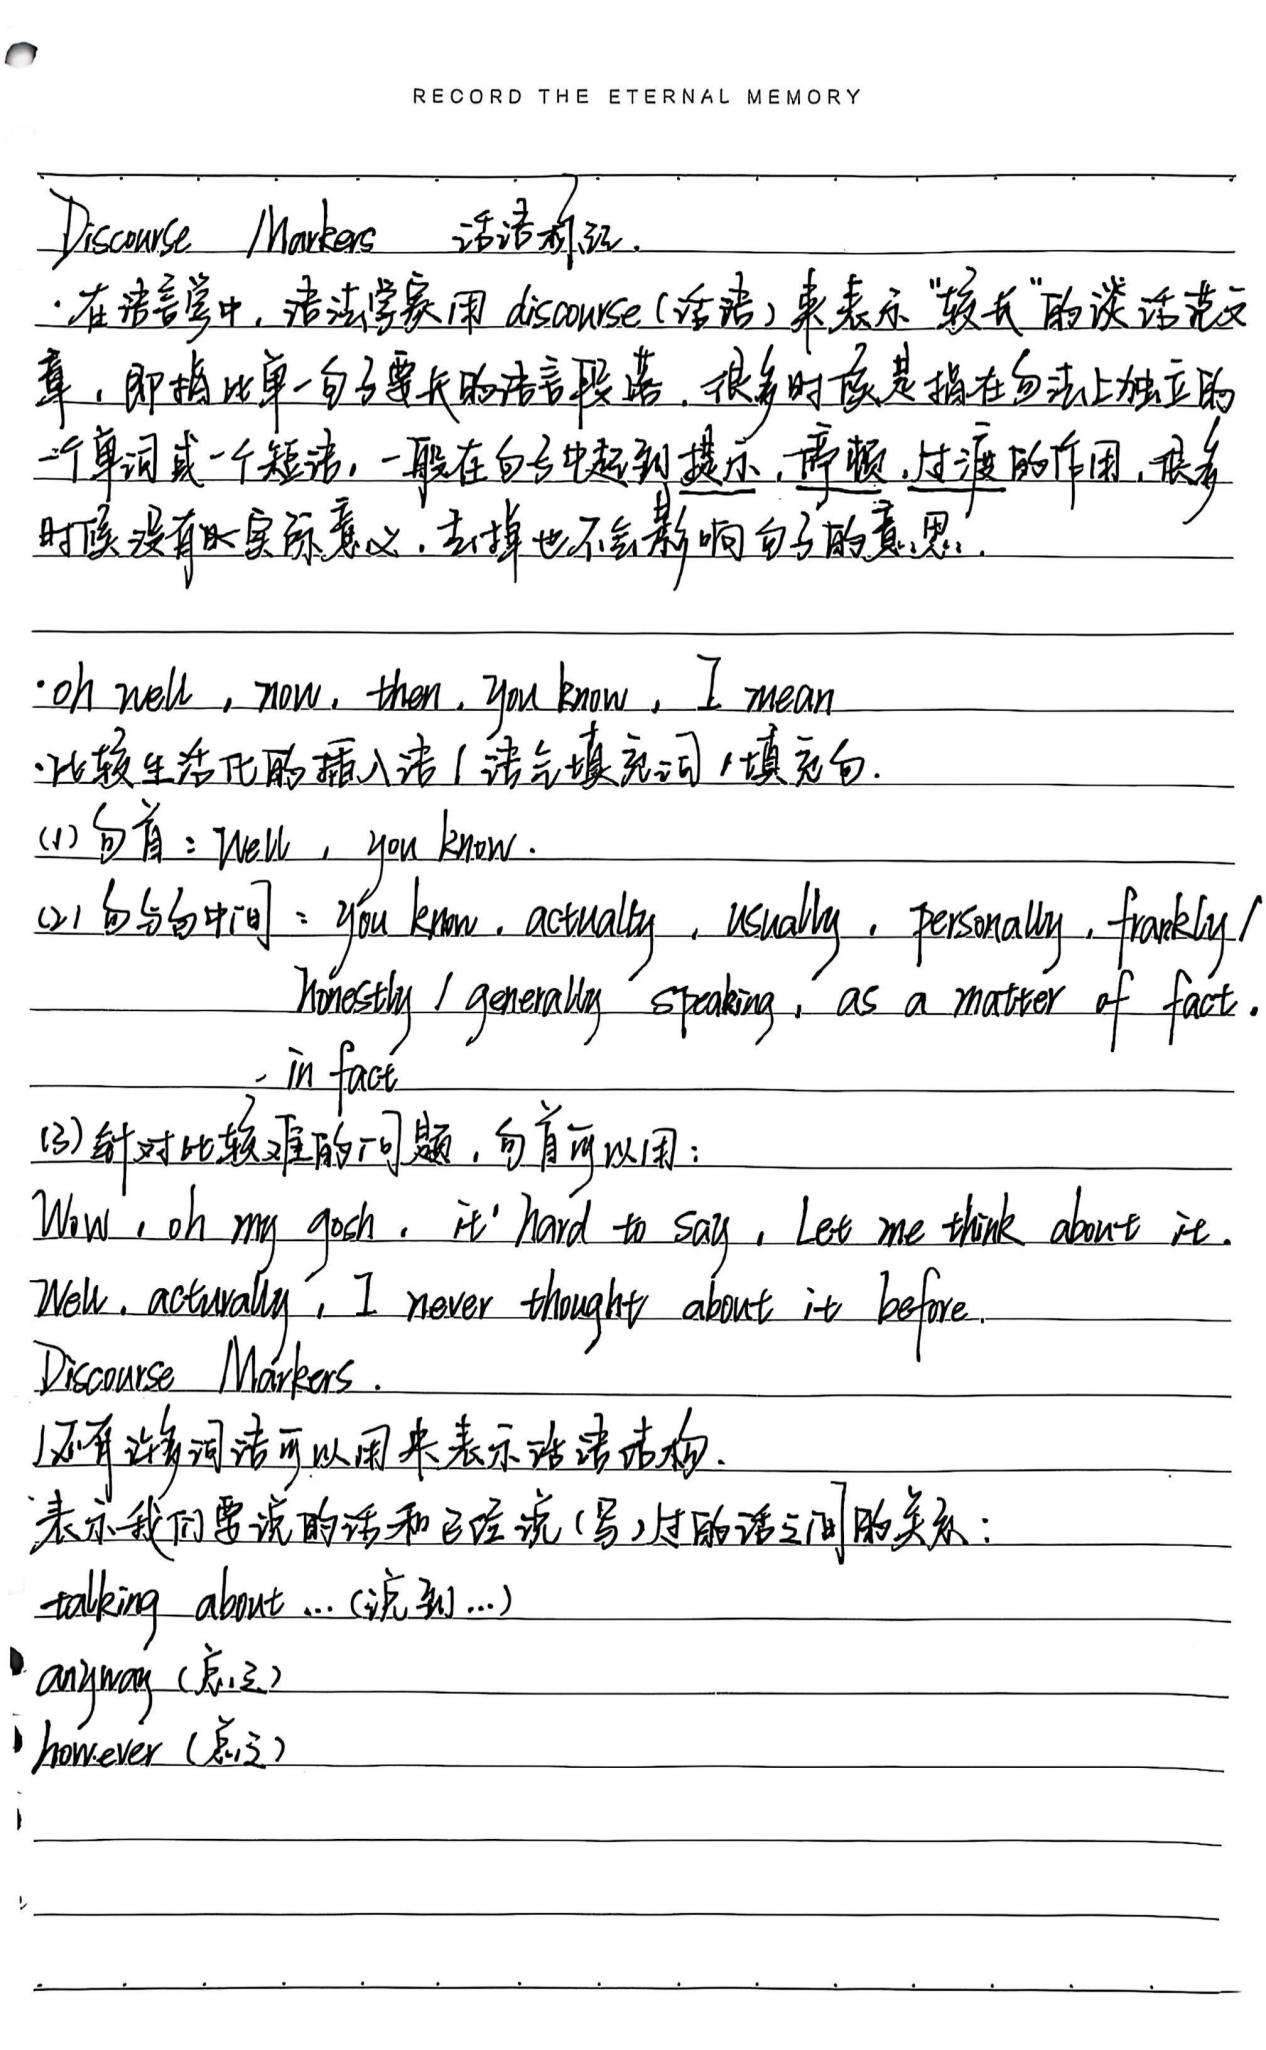 RECORD THE ETERNAL MEMORY
Discourse Markers 话语标记.
·在语言学中,语法学家用 discourse(话语)来表示"较长"的谈话或文
章,即指比单一句子要长的语言段落.很多时候是指在句法上独立的
一个单词或一个短语,一般在句子中起到提示,停顿,过渡的作用,很多
时候没有实际意义,去掉也不会影响句子的意思.
·oh well, now, then, you know, I mean
·比较生活化的插入语/语气填充词/填充句.
(1)句首:Well, you know.
(2)句与句中间:you know, actually, usually, personally, frankly/
honestly/generally speaking, as a matter of fact.
, in fact
(3)针对比较难的问题,句首可以用:
Wow, oh my gosh, it' hard to say, Let me think about it.
Well, acturally, I never thought about it before.
Discourse Markers.
还有许多词语可以用来表示话语结构.
·表示我们要说的话和已经说(写)过的话之间的关系:
talking about …(说到…)
anyway (总之)
however (总之)